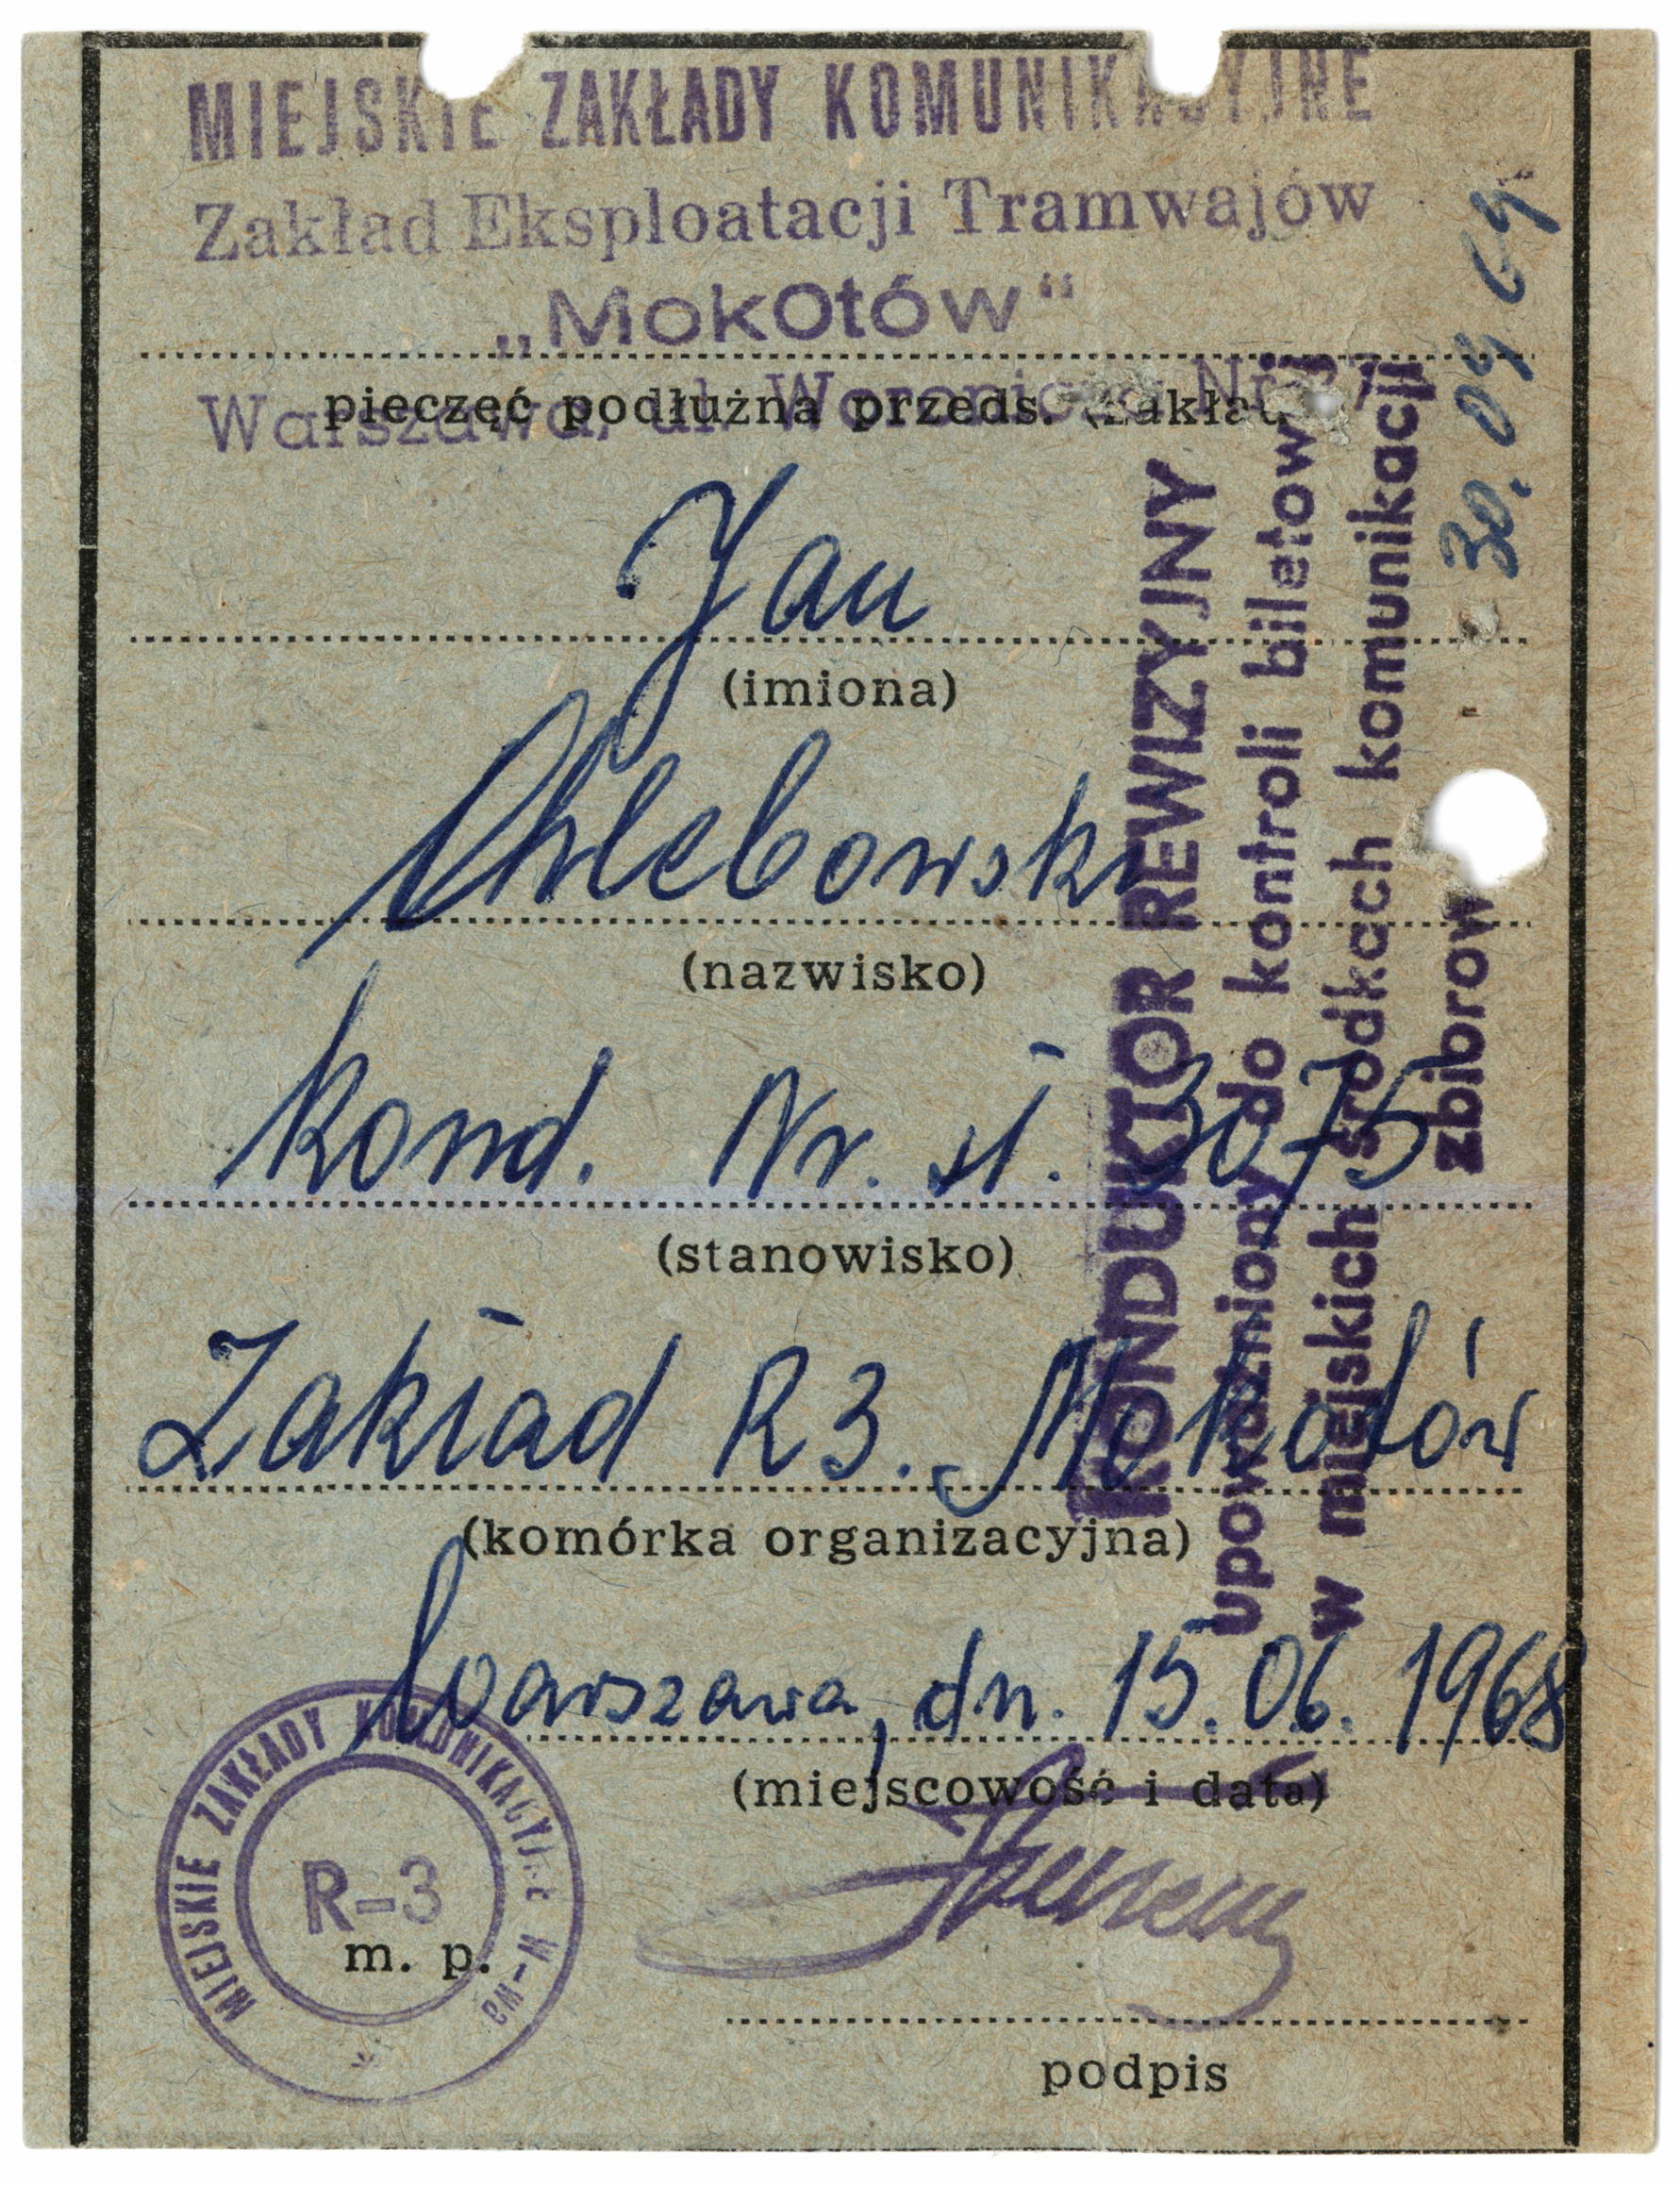 MIEJSKIE ZAKŁADY KOMUNIKACYJNE
Zakład Eksploatacji Tramwajów
„Mokotów“
Warszawa, ul. Woronicza Nr
pieczęć podłużna przeds. (zakład
Jan
(imiona)
Chlebowski
(nazwisko)
Kond. Nr. sł. 3075
(stanowisko)
Zakład R3. Mokotów
(komórka organizacyjna)
Warszawa, dn. 15.06.1968
(miejscowość i data)
MIEJSKIE ZAKŁADY KOMUNIKACYJNE W-wa
R-3
m. p.
podpis
KONDUKTOR REWIZYJNY
upoważniony do kontroli biletowej
w miejskich środkach komunikacji
zbiorow
30.09 69